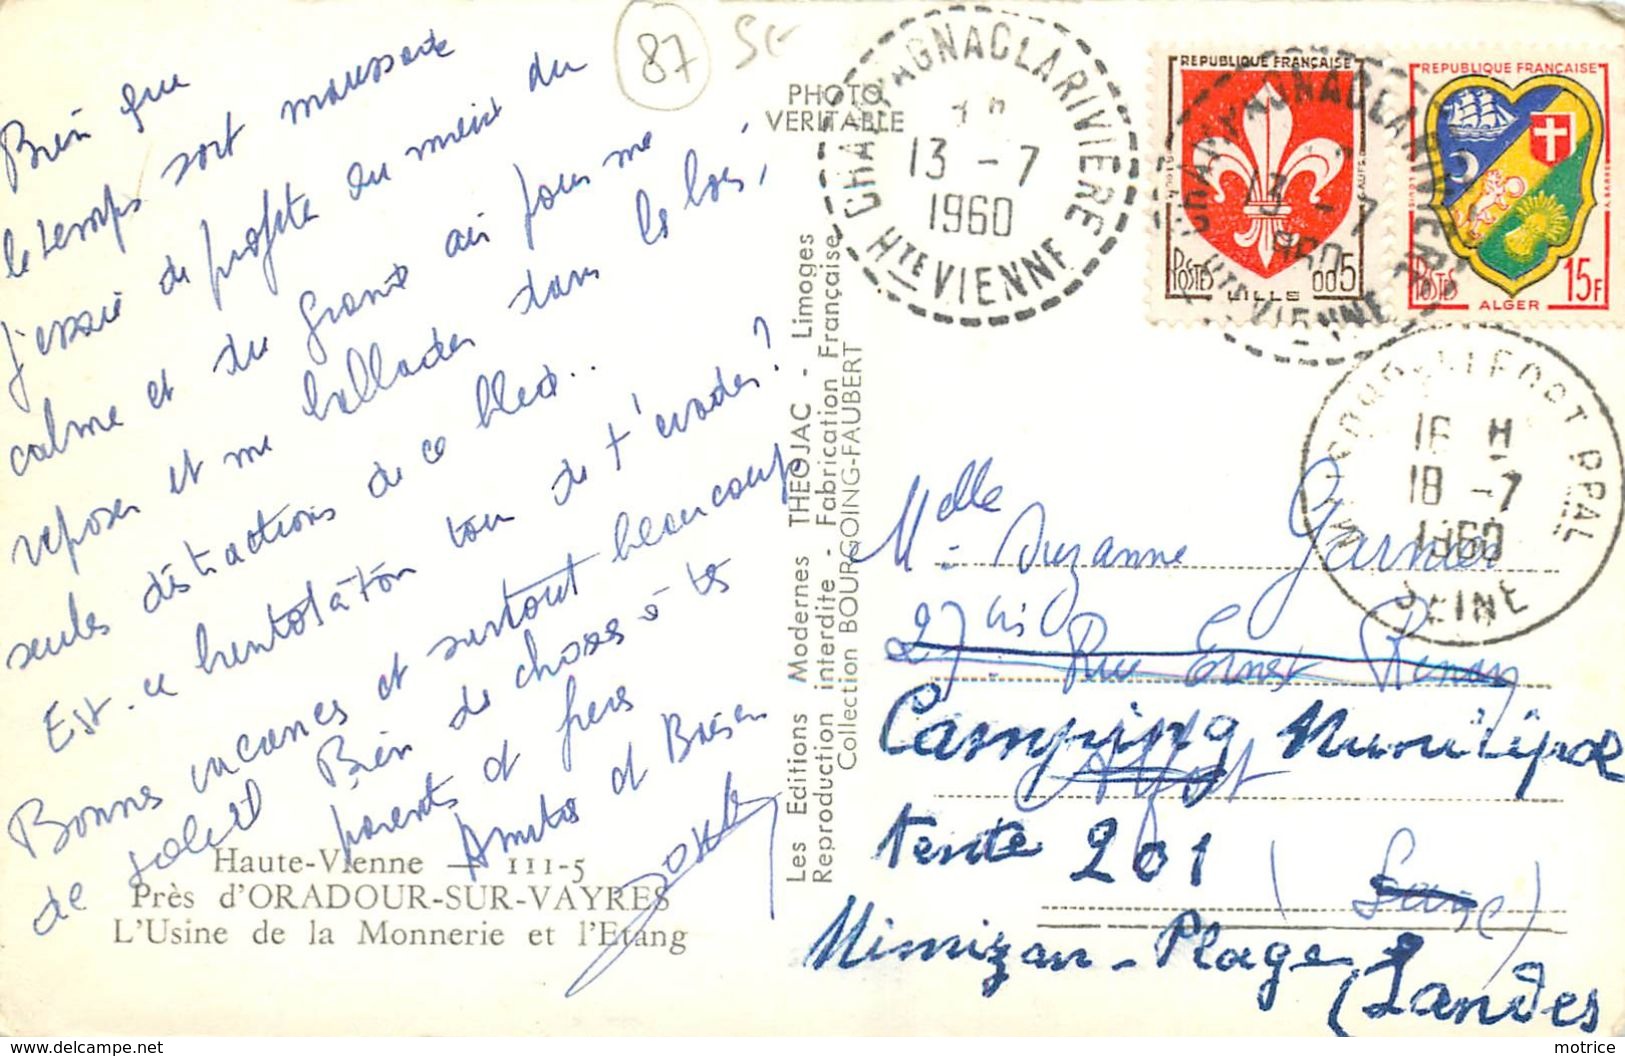 Bien que
le temps soit maussade
j'essaie de profiter au mieux du
calme et du grand air pour me
reposer et me ballader dans les bois,
seules distractions de ce bled..
Est-ce bientôt à ton tour de t'évader?
Bonnes vacances et surtout beaucoup
de soleil Bien de choses à tes
parents et frère
Amitiés et Baisers
Haute-Vienne — 111-5
Près d'ORADOUR-SUR-VAYRES
L'Usine de la Monnerie et l'Etang
87
PHOTO
VERITABLE
Les Editions Modernes THEOJAC - Limoges
Reproduction interdite - Fabrication Française
Collection BOURGOING-FAUBERT
CHAMPAGNACLARIVIERE
13 - 7
1960
HTE VIENNE
REPUBLIQUE FRANÇAISE
POSTES
LILLE
0.05
REPUBLIQUE FRANÇAISE
POSTES
15F
ALGER
CHAMPAGNACLARIVIERE
13 - 7
1960
HTE VIENNE
16 H
18 - 7
1960
SEINE
Melle Suzanne Garnier
27 bis Rue Ernest Renan
Camping Municipal
Alfort
tente 201
(Seine)
Mimizan-Plage
(Landes
motrice